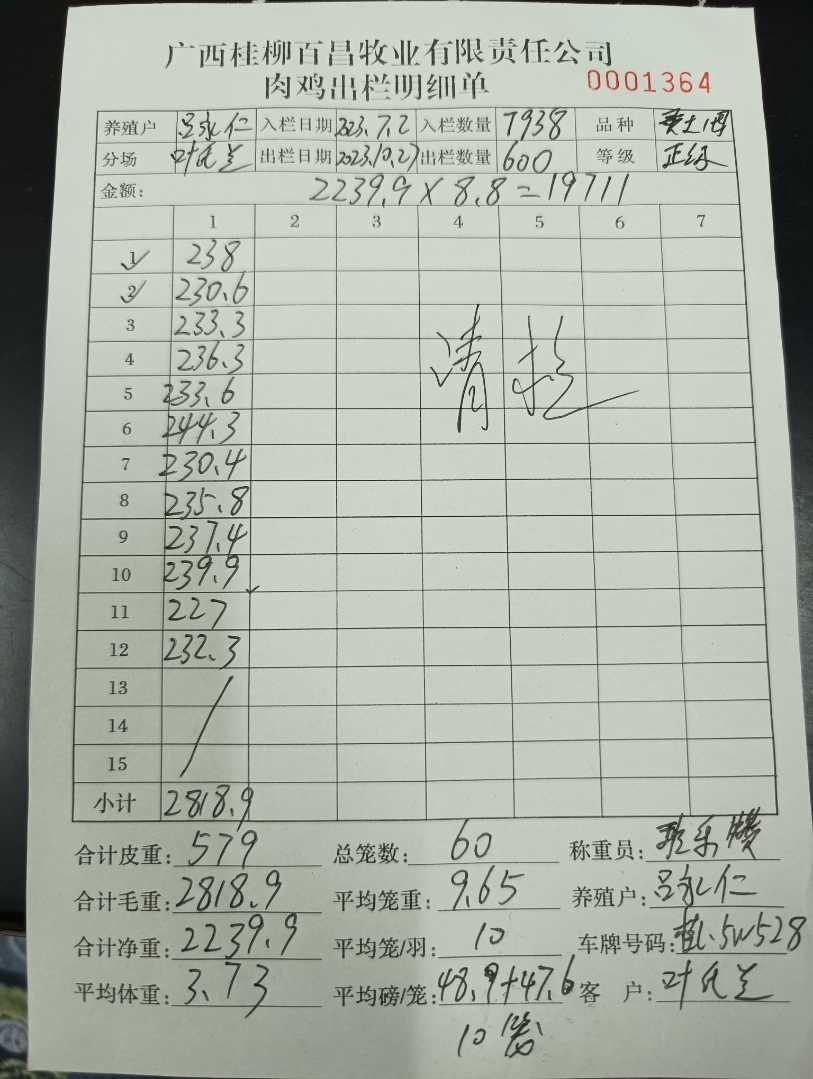 广西桂柳百昌牧业有限责任公司
肉鸡出栏明细单 0001364
养殖户 吕永仁 入栏日期 2023.7.2 入栏数量 7938 品种
分场 叶氏兰 出栏日期 2023.10.27 出栏数量 600 等级 正级
金额: 2239.9×8.8=19711
1 2 3 4 5 6 7
1 238
2 230.6
3 233.3
4 236.3
5 233.6
6 244.3
7 230.4
8 235.8
9 237.4
10 239.9
11 227
12 232.3
13
14
15
请
小计 2818.9
合计皮重: 579 总笼数: 60 称重员:
合计毛重: 2818.9 平均笼重: 9.65 养殖户: 吕永仁
合计净重: 2239.9 平均笼/羽: 10 车牌号码: 桂L·5W528
平均体重: 3.73 平均磅/笼: 48.9+47.6 客 户: 叶氏兰
10